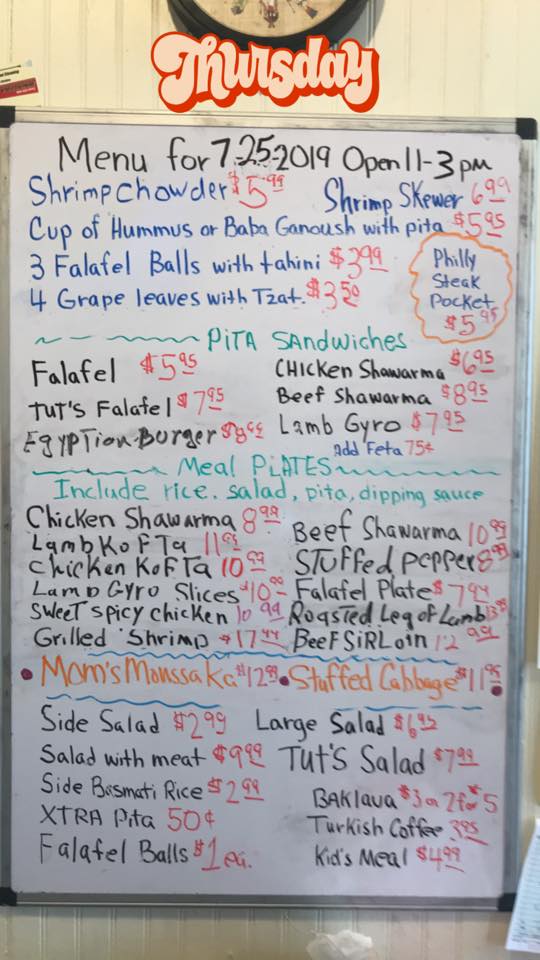 Thursday
Menu for 7-25-2019 Open 11-3 pm
Shrimp chowder $5.99 Shrimp Skewer 6.99
Cup of Hummus or Baba Ganoush with pita $5.95
3 Falafel Balls with tahini $3.99
4 Grape leaves with Tzat. $3.50
Philly
Steak
Pocket
$5.95
PiTA SANdwiches
Falafel $5.95 CHICKen Shawarma $6.95
TUT'S Falafel $7.95 Beef Shawarma $8.95
EgypTion Burger $8.99 Lamb Gyro $7.95
Add Feta 75¢
Meal PLATES
Include rice. salad, pita, dipping sauce
Chicken Shawarma 8.99 Beef Shawarma 10.99
Lamb KoFTa 11.95 STuffed pepper 8.99
Chicken KoFTa 10.99 Falafel Plate $7.99
Lamb Gyro Slices $10.99 Roasted Leg of Lamb
Sweet spicy chicken 10.99 BeeF SiRLoin 12.99
Grilled Shrimp $17.99
Mom's Moussaka $12.99 Stuffed Cabbage $11.95
Side Salad $2.99 Large Salad $6.95
Salad with meat $9.99 TUT'S Salad $7.99
Side Basmati Rice $2.99 BAKlava $3 or 2 for $5
XTRA Pita 50¢ Turkish Coffee 3.95
Falafel Balls $1 ea. Kid's Meal $4.99